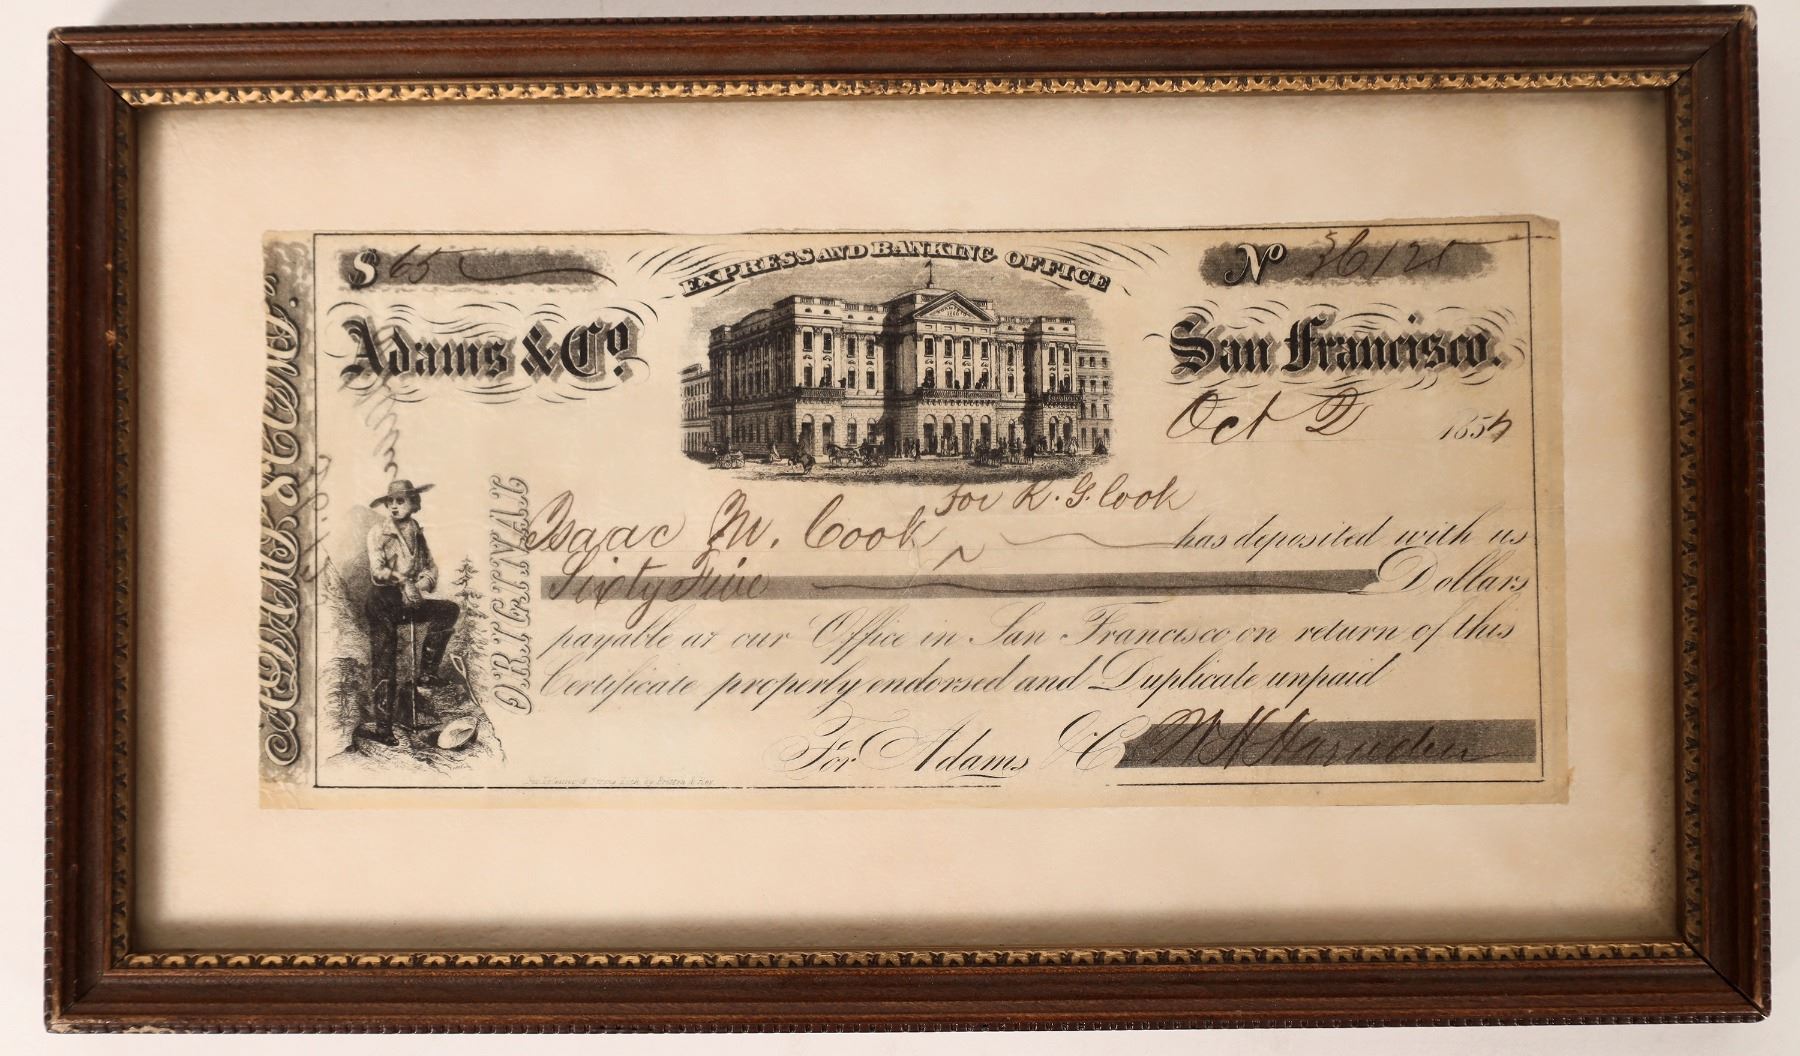 $ 65
EXPRESS AND BANKING OFFICE
No 36125
Adams & Co.
San Francisco.
Oct 2 1854
for R. G. Cook
Isaac M. Cook has deposited with us
Sixty Five Dollars
payable at our Office in San Francisco on return of this
Certificate properly endorsed and Duplicate unpaid
For Adams & Co
ORIGINAL